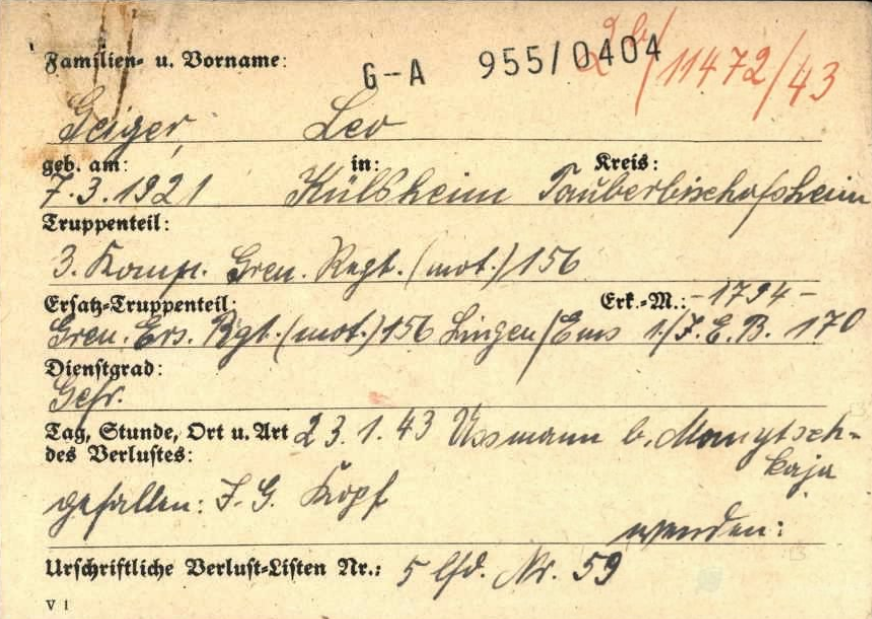 Familien- u. Vorname:
G-A 955/0404
2b/11472/43
Geiger, Leo
geb. am: in: Kreis:
7.3.1921 Külsheim Tauberbischofsheim
Truppenteil:
3. Komp. Gren. Regt. (mot.) 156
Ersatz-Truppenteil: Erk.-M.: -1794-
Gren. Ers. Rgt. (mot.) 156 Lingen/Ems 1./J.E.B. 170
Dienstgrad:
Gefr.
Tag, Stunde, Ort u. Art 23.1.43 Ussmann b. Manytsch-
des Verlustes: kaja
gefallen: J.G. Kopf
wenden:
Urschriftliche Verlust-Listen Nr.: 5 lfd. Nr. 59
V 1